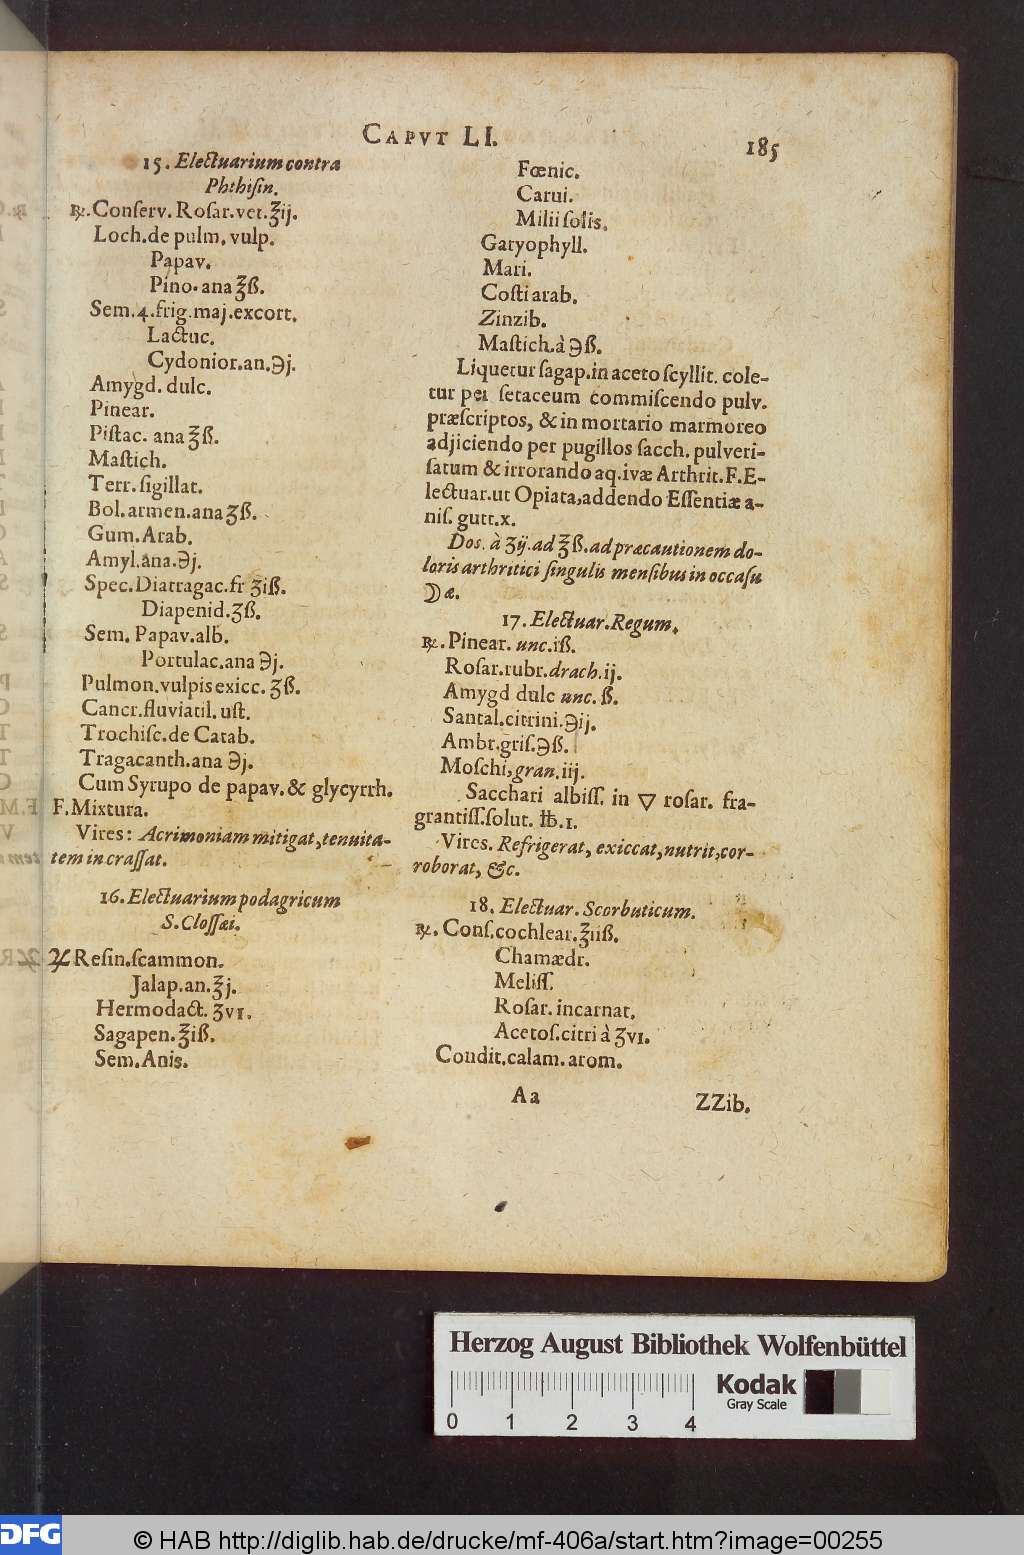 CAPVT LI.
185
15. Electuarium contra
Phthiſin.
℞. Conſerv. Roſar. vet. ℥ij.
Loch. de pulm. vulp.
Papav.
Pino. ana ℥ß.
Sem. 4. frig. maj. excort.
Lactuc.
Cydonior. an. ℈j.
Amygd. dulc.
Pinear.
Piſtac. ana ℥ß.
Maſtich.
Terr. ſigillat.
Bol. armen. ana ʒß.
Gum. Arab.
Amyl. ana. ℈j.
Spec. Diatragac. fr ʒiß.
Diapenid. ʒß.
Sem. Papav. alb.
Portulac. ana ℈j.
Pulmon. vulpis exicc. ʒß.
Cancr. fluviatil. uſt.
Trochiſc. de Carab.
Tragacanth. ana ℈j.
Cum Syrupo de papav. & glycyrrh.
F. Mixtura.
Vires: Acrimoniam mitigat, tenuita-
tem in craſſat.
16. Electuarium podagricum
S. Cloſſæi.
♃ Reſin. ſcammon.
Jalap. an. ℥j.
Hermodact. ʒvi.
Sagapen. ℥iß.
Sem. Anis.
Fœnic.
Carui.
Milii ſolis.
Garyophyll.
Mari.
Coſti arab.
Zinzib.
Maſtich. à ℈ß.
Liquetur ſagap. in aceto ſcyllit. cole-
tur per ſetaceum commiſcendo pulv.
præſcriptos, & in mortario marmoreo
adjiciendo per pugillos ſacch. pulveri-
ſatum & irrorando aq. ivæ Arthrit. F. E-
lectuar. ut Opiata, addendo Eſſentiæ a-
niſ. gutt. x.
Dos. à ʒij. ad ℥ß. ad præcautionem do-
loris arthritici ſingulis menſibus in occaſu
☽æ.
17. Electuar. Regum.
℞. Pinear. unc. iß.
Roſar. rubr. drach. ij.
Amygd dulc unc. ß.
Santal. citrini. ℈ij.
Ambr. griſ. ℈ß.
Moſchi, gran. iij.
Sacchari albiſſ. in ▽ roſar. fra-
grantiſſ. ſolut. ℔. 1.
Vires. Refrigerat, exiccat, nutrit, cor-
roborat, &c.
18. Electuar. Scorbuticum.
℞. Conſ. cochlear. ℥iiß.
Chamædr.
Meliſſ.
Roſar. incarnat.
Acetoſ. citri à ʒvi.
Condit. calam. arom.
Aa
ZZib.
Herzog August Bibliothek Wolfenbüttel
Kodak
Gray Scale
0 1 2 3 4
DFG
© HAB http://diglib.hab.de/drucke/mf-406a/start.htm?image=00255